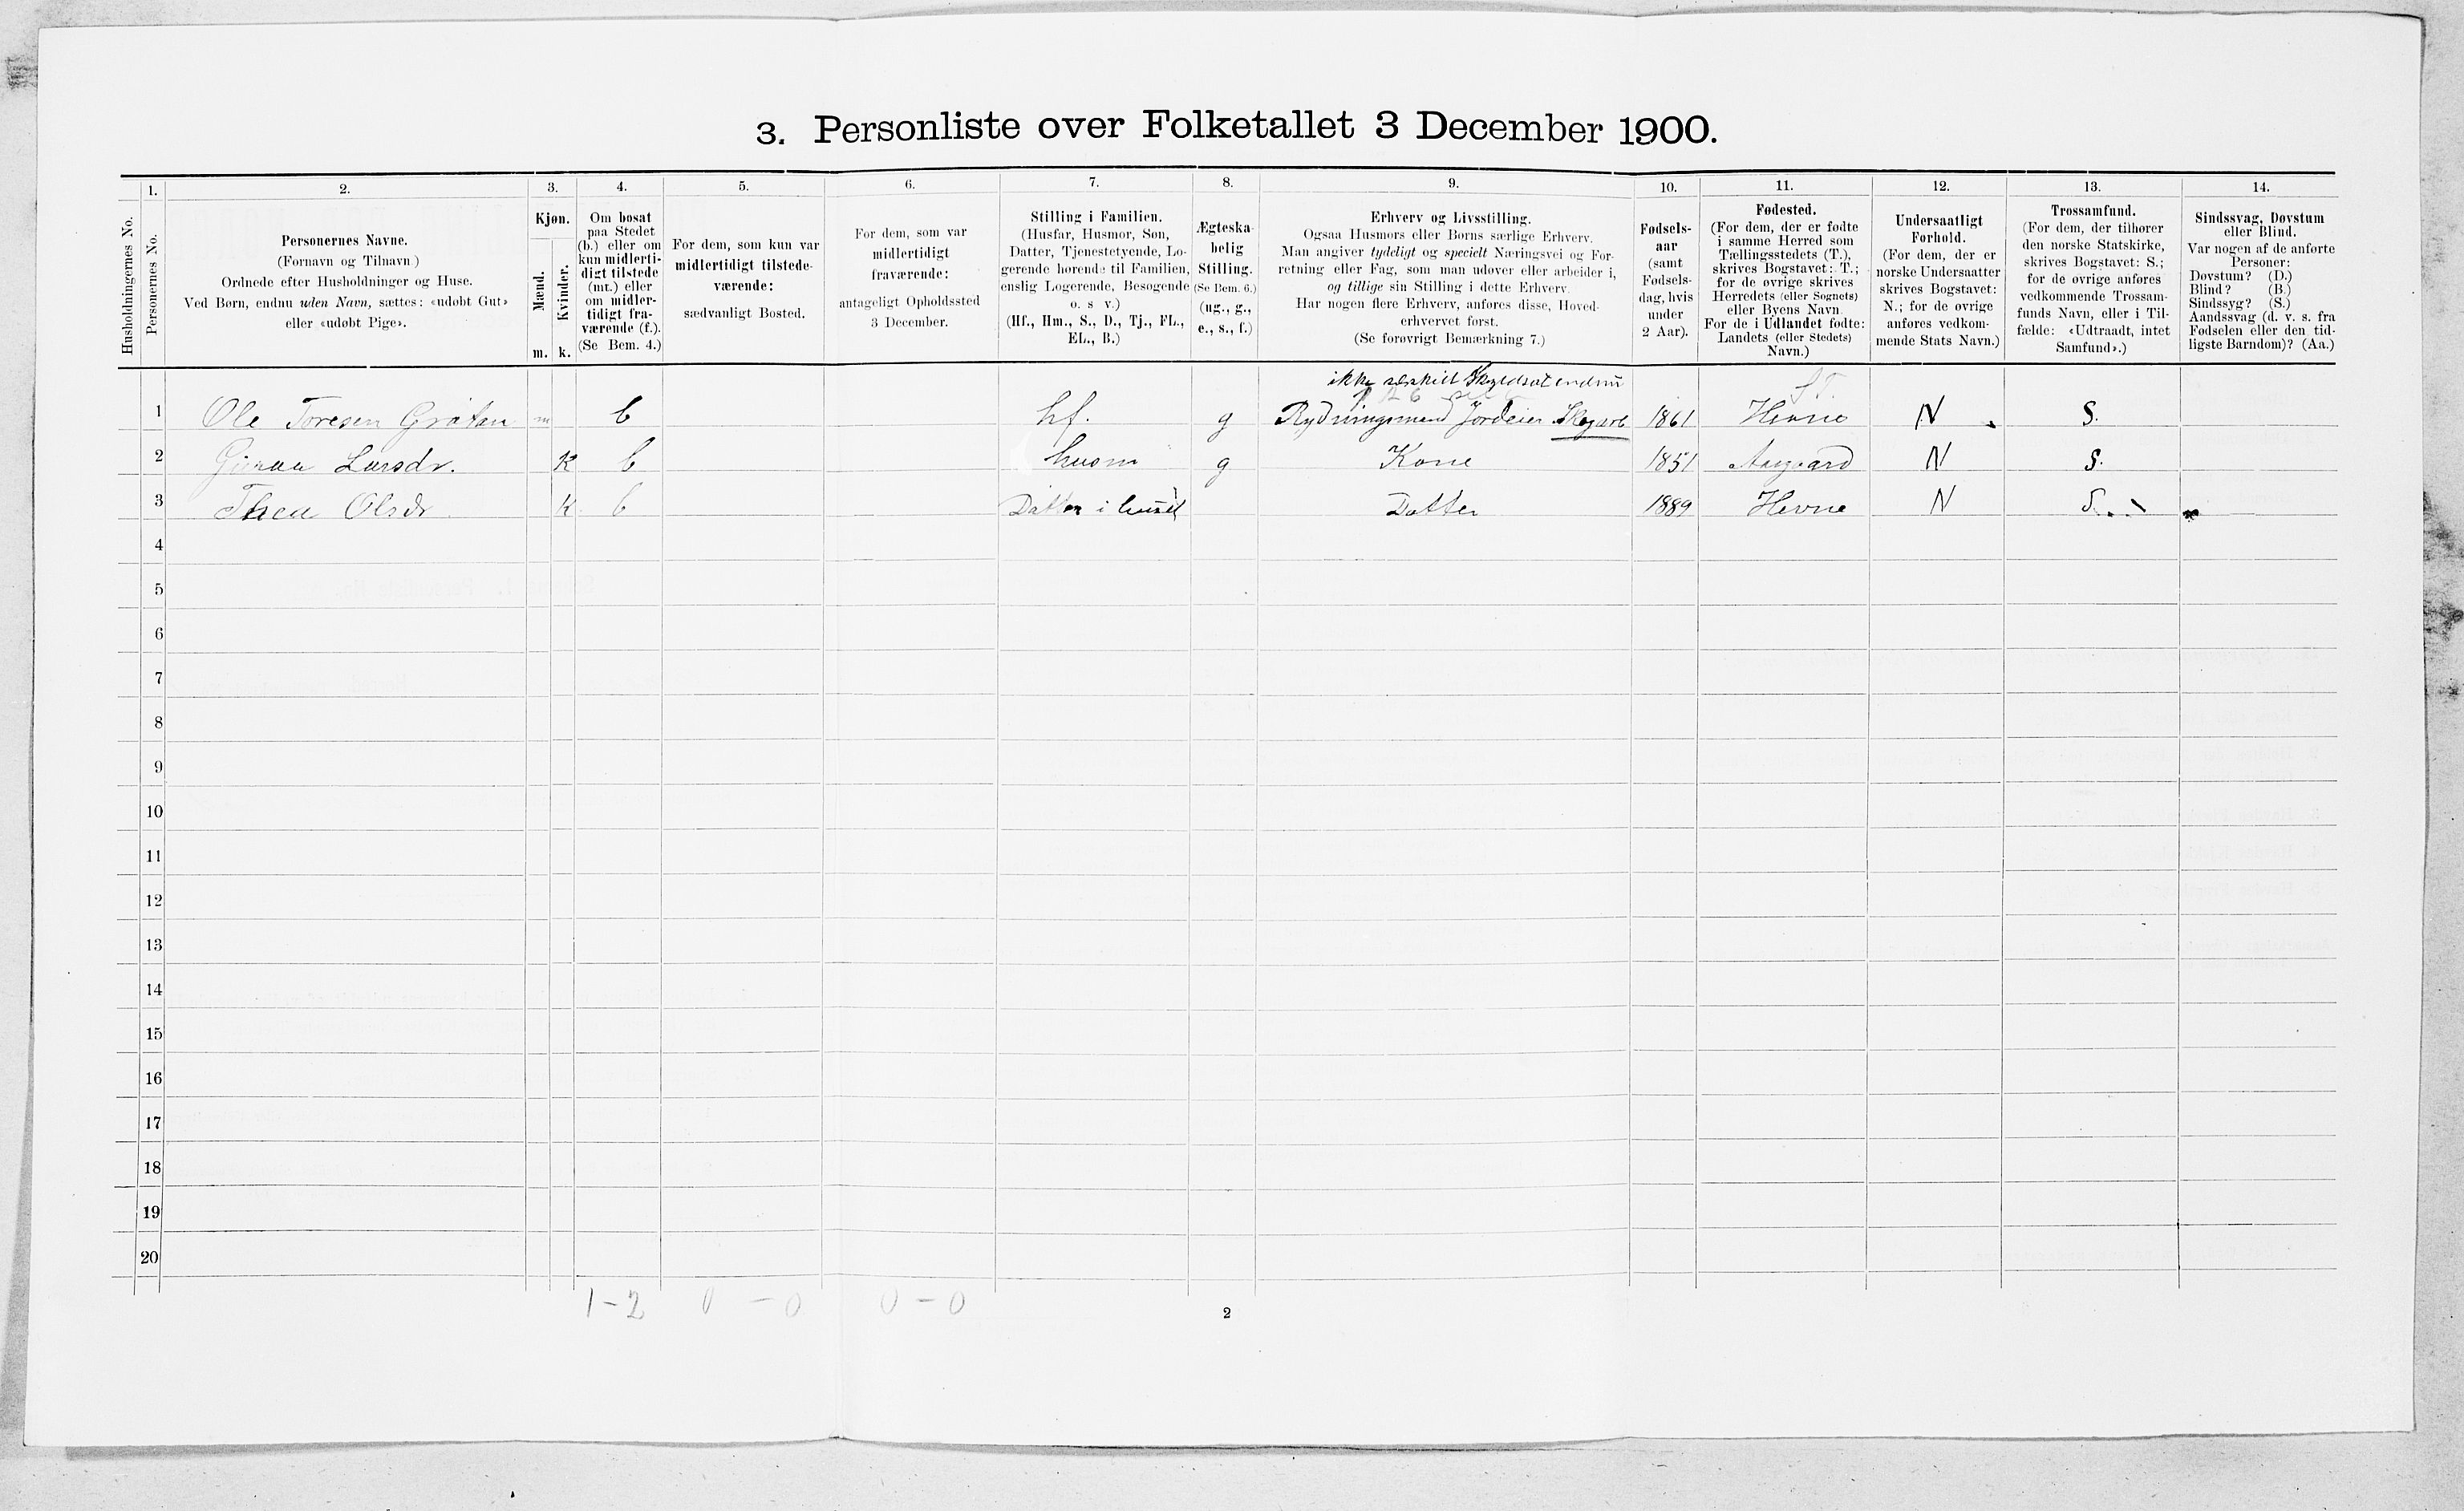 3. Personliste over Folketallet 3 December 1900.
Husholdningernes No.
1.
Personernes No.
2.
Personernes Navne.
(Fornavn og Tilnavn)
Ordnede efter Husholdninger og Huse.
Ved Børn, endnu uden Navn, sættes: «udøbt Gut»
eller «udøbt Pige».
3.
Kjøn.
Mænd.
Kvinder.
m. k.
4.
Om bosat
paa Stedet
(b.) eller om
kun midlerti-
digt tilstede
(mt.) eller
om midler-
tidigt fra-
værende (f.).
(Se Bem. 4.)
5.
For dem, som kun var
midlertidigt tilstede-
værende:
sædvanligt Bosted.
6.
For dem, som var
midlertidigt
fraværende:
antageligt Opholdssted
3 December.
7.
Stilling i Familien.
(Husfar, Husmor, Søn,
Datter, Tjenestetyende, Lo-
gerende hørende til Familien,
enslig Logerende, Besøgende
o. s v.)
(Hf., Hm., S., D., Tj., FL.,
EL., B.)
8.
Ægteska-
belig
Stilling.
(Se Bem. 6.)
(ug., g.,
e., s., f.)
9.
Erhverv og Livsstilling.
Ogsaa Husmors eller Børns særlige Erhverv.
Man angiver tydeligt og specielt Næringsvei og For-
retning eller Fag, som man udøver eller arbeider i,
og tillige sin Stilling i dette Erhverv.
Har nogen flere Erhverv, anføres disse, Hoved-
erhvervet først.
(Se forøvrigt Bemærkning 7.)
10.
Fødsels-
aar
(samt
Fødsels-
dag, hvis
under
2 Aar).
11.
Fødested.
(For dem, der er fødte
i samme Herred som
Tællingsstedets (T.),
skrives Bogstavet: T.;
for de øvrige skrives
Herredets (eller Sognets)
eller Byens Navn.
For de i Udlandet fødte:
Landets (eller Stedets)
Navn.)
12.
Undersaatligt
Forhold.
(For dem, der er
norske Undersaatter
skrives Bogstavet:
N.; for de øvrige
anføres vedkom-
mende Stats Navn.)
13.
Trossamfund.
(For dem, der tilhører
den norske Statskirke,
skrives Bogstavet: S.;
for de øvrige anføres
vedkommende Trossam-
funds Navn, eller i Til-
fælde: «Udtraadt, intet
Samfund».)
14.
Sindssvag, Døvstum
eller Blind.
Var nogen af de anførte
Personer:
Døvstum? (D.)
Blind? (B.)
Sindssyg? (S.)
Aandssvag (d. v. s. fra
Fødselen eller den tid-
ligste Barndom)? (Aa.)
ikke særskilt Skyldsat endnu
1 Ole Toresen Gråten m b hf. g Rydningsmand Jordeier Skogarb 1861 Hevne N S.
2 Larsdr. K b husm g Kone 1851 Aasgaard N S.
3 Thea Olsdr K b Datter i huset Datter 1889 Hevne N S.
4
5
6
7
8
9
10
11
12
13
14
15
16
17
18
19
20
1-2 0-0 0-0
2